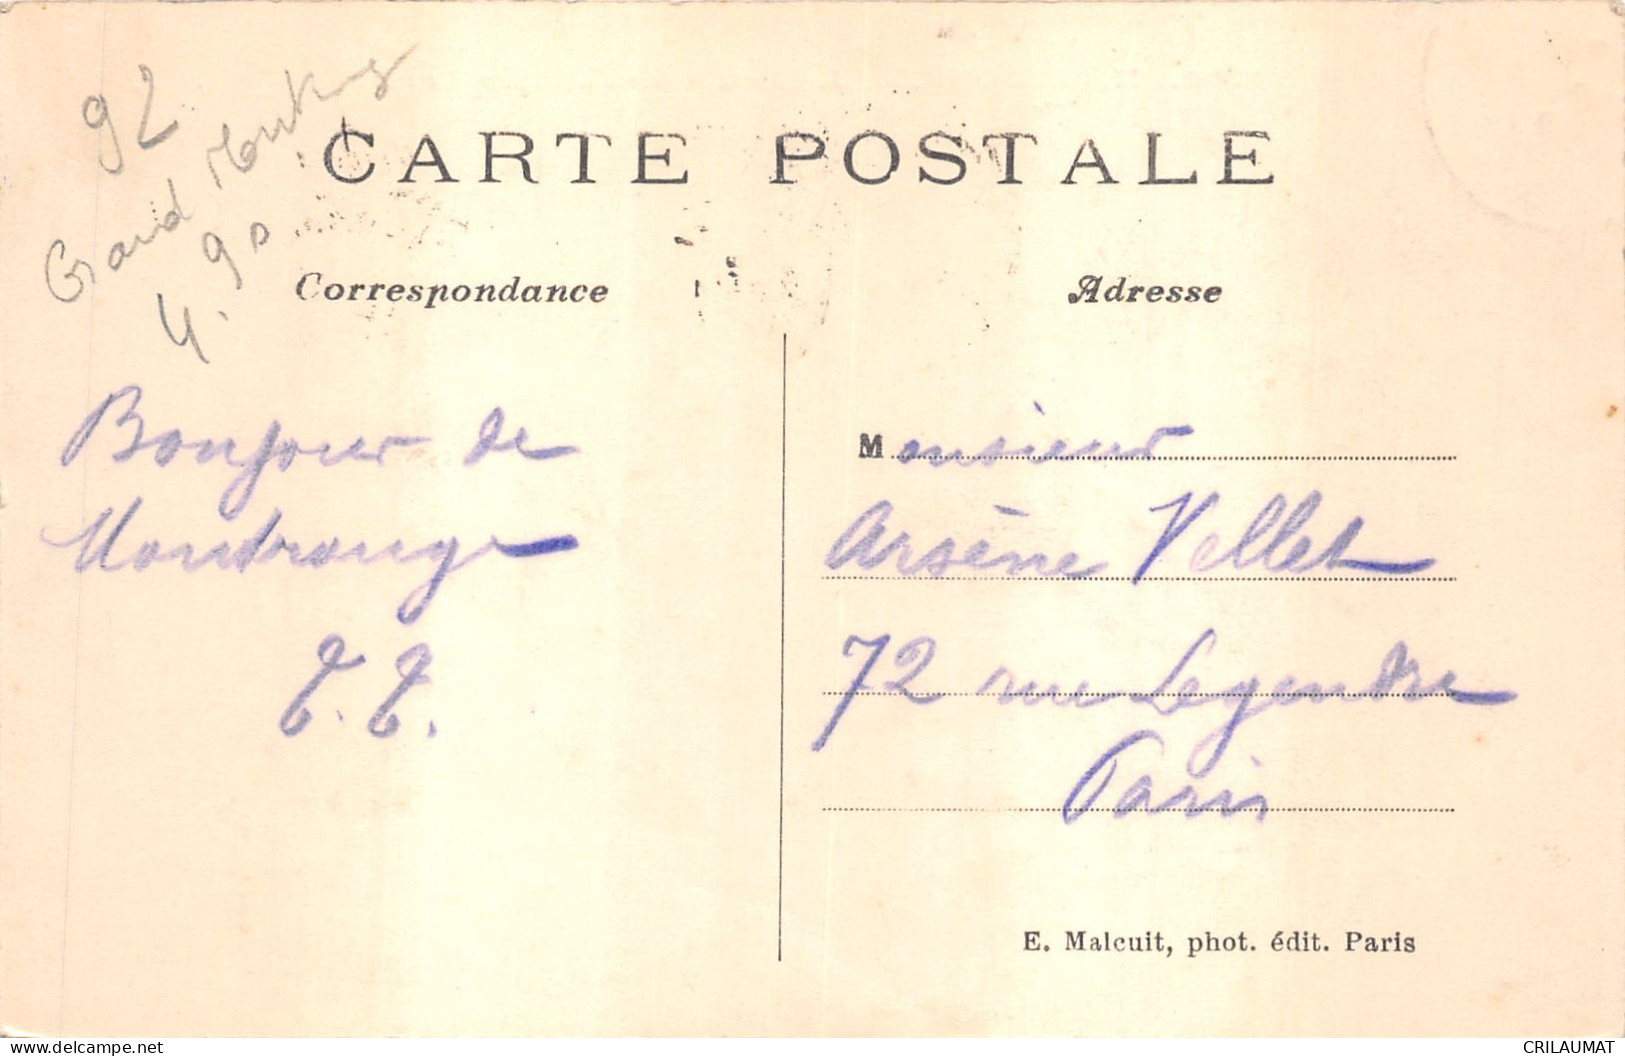 92
Grand Montroug
4.90
CARTE POSTALE
Correspondance
Adresse
Bonjour de
Montrouge
T. T.
Monsieur
Arsène Vellet
72 rue Legendre
Paris
E. Malcuit, phot. édit. Paris
www.delcampe.net
CRILAUMAT